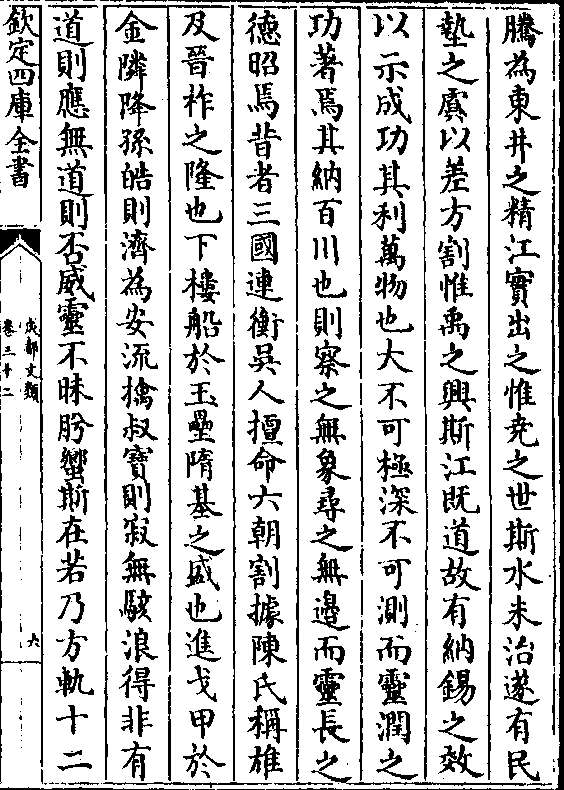 騰為東井之精江實出之惟堯之世斯水未治遂有民
墊之虞以差方割惟禹之興斯江既道故有納錫之效
以示成功其利萬物也大不可極深不可測而靈潤之
功著焉其納百川也則察之無象尋之無邉而靈長之
徳昭焉昔者三國連衡吳人擅命六朝割據陳氏稱雄
及晉祚之隆也下樓船於玉壘隋基之盛也進戈甲於
金隣降孫皓則濟為安流擒叔寶則寂無駭浪得非有
道則應無道則否威靈不昧肸蠁斯在若乃方軌十二
欽定四庫全書
成都文類
卷三十二
六